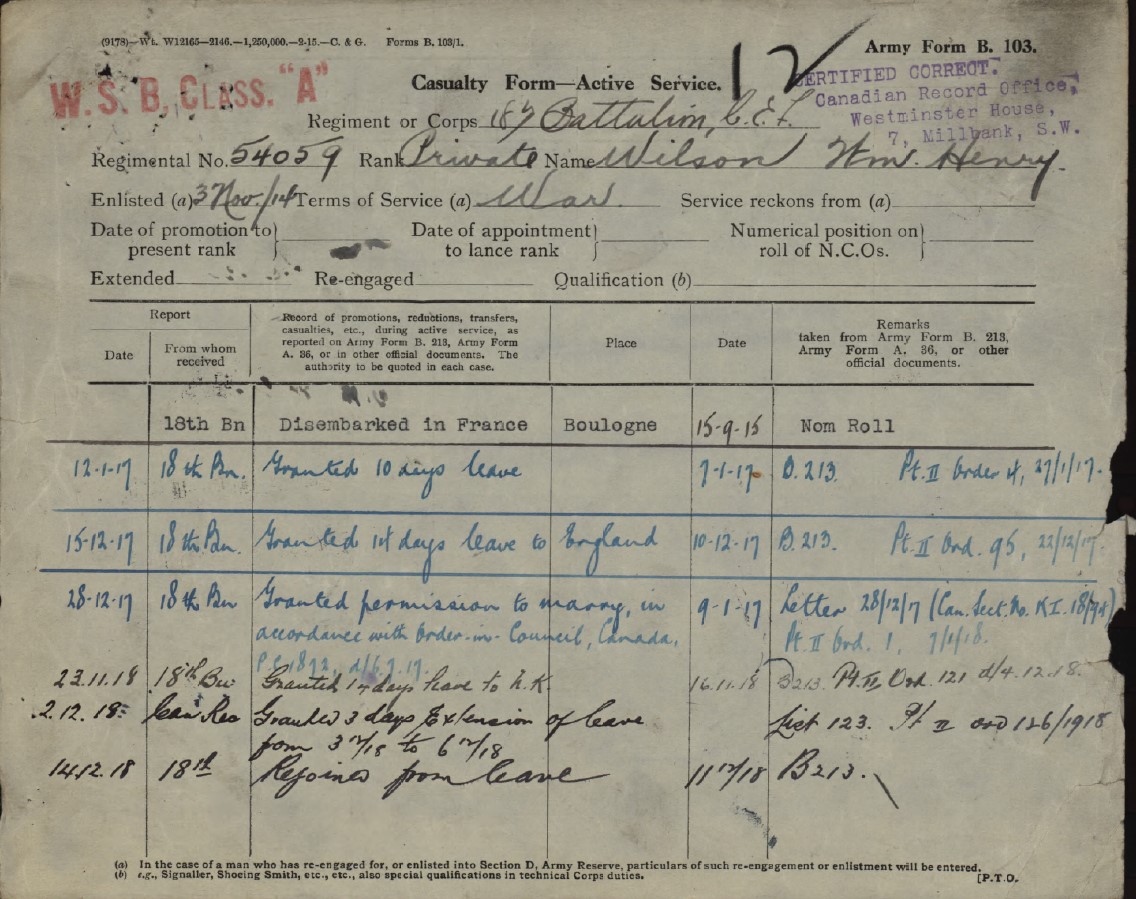 (9178)—Wt. W12165—2146.—1,250,000.—2-15.—C. & G. Forms B. 103/1.
Army Form B. 103.
W.S.B. CLASS. "A"
Casualty Form—Active Service.
12
CERTIFIED CORRECT.
Canadian Record Office,
Westminster House,
7, Millbank, S.W.
Regiment or Corps 18th Battalion, C.E.F.
Regimental No. 54059 Rank Private Name Wilson Wm. Henry.
Enlisted (a) 3 Nov./14 Terms of Service (a) War Service reckons from (a)
Date of promotion to present rank } Date of appointment to lance rank } Numerical position on roll of N.C.Os. }
Extended Re-engaged Qualification (b)
Report
Date
From whom received
Record of promotions, reductions, transfers, casualties, etc., during active service, as reported on Army Form B. 213, Army Form A. 36, or in other official documents. The authority to be quoted in each case.
Place
Date
Remarks taken from Army Form B. 213, Army Form A. 36, or other official documents.
18th Bn Disembarked in France Boulogne 15-9-15 Nom Roll
12-1-17 18th Bn. Granted 10 days leave 7-1-17 B.213. Pt. II Order 4, 27/1/17.
15-12-17 18th Bn. Granted 14 days leave to England 10-12-17 B.213. Pt. II Ord. 95, 22/12/17.
28-12-17 18th Bn Granted permission to marry, in 9-1-17 Letter 28/12/7 (Can. Sect. No. K I. 18/
accordance with Order-in-Council, Canada, Pt. II Ord. 1, 7/1/18.
P.C. 1872, d/6.7.17.
23.11.18 18th Bn Granted 14 days leave to U.K. 16.11.18 B213. Pt. II Ord. 121 d/4.12.18.
2.12.18. Can Rec Granted 3 days Extension of leave List 123. Pt II ord 126/1918
from 3 12/18 to 6 12/18
14.12.18 18th Rejoined from leave 11 12/18 B213.
(a) In the case of a man who has re-engaged for, or enlisted into Section D, Army Reserve, particulars of such re-engagement or enlistment will be entered.
(b) e.g., Signaller, Shoeing Smith, etc., etc., also special qualifications in technical Corps duties.
[P.T.O.